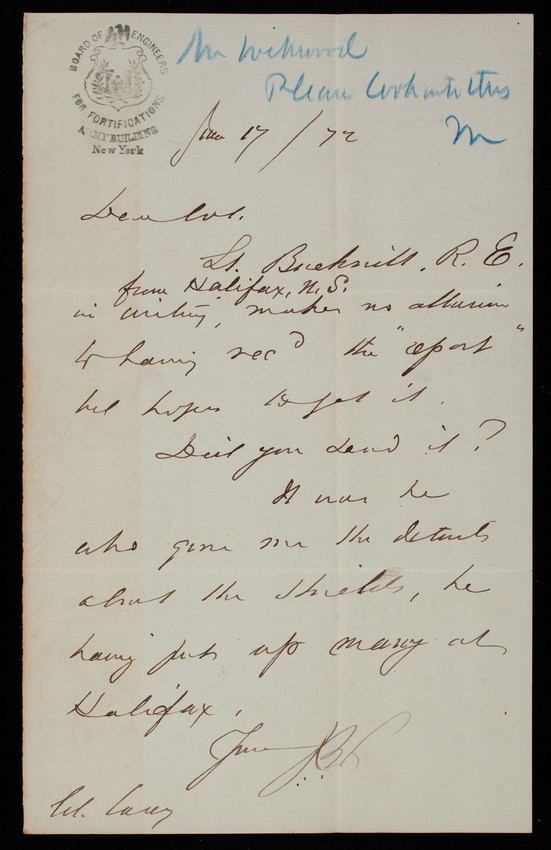 BOARD OF ENGINEERS
FOR FORTIFICATIONS
ARMY BUILDING
New York
Mr Lockwood
Please look into this
Jan 17/72
Dear Col.
Lt. Bucknill, R. E.
from Halifax, N. S.
in writing, makes no allusion
to having rec'd the "report"
but hopes to get it.
Did you send it?
It was he
who gave me the details
about the shields, he
having put up many at
Halifax.
Yours
Col. Casey